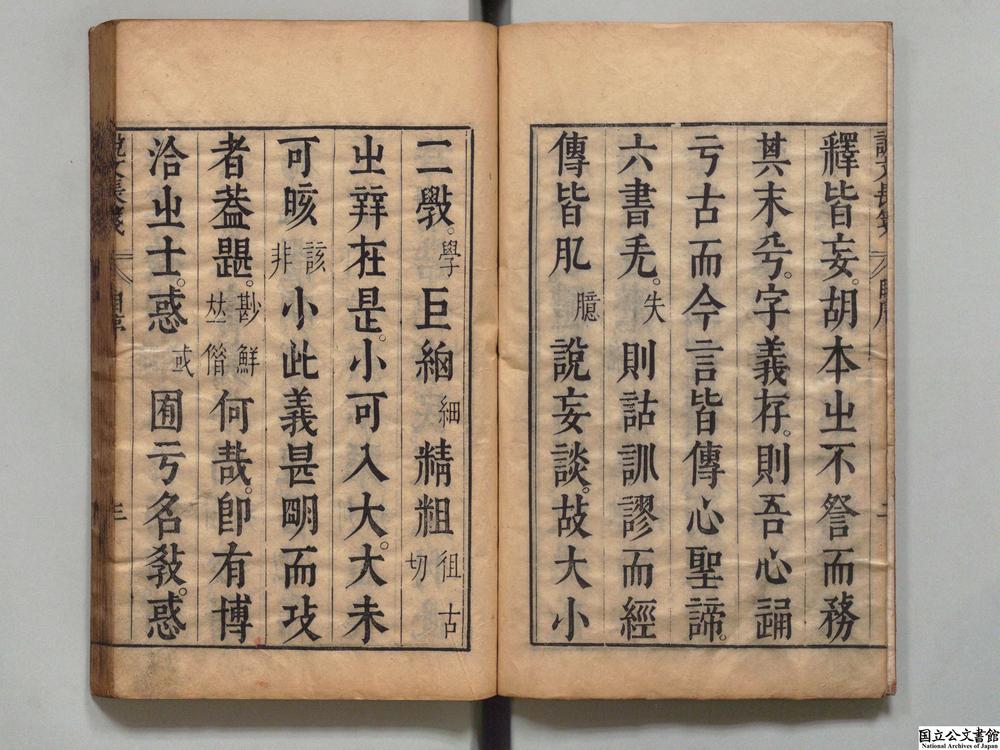 釋皆妄。胡本㞢不詧而務
其末兮。字義存。則吾心
亏古而今言皆傳心聖諦。
六書兂。失則詁訓謬而經
傳皆肊臆說妄談。故大小
二斆。學巨緰細精粗徂古切
㞢辨在是。小可入大。大未
可晐該非小此義甚朙而攻
者葢尟鮮。何哉。卽有博
洽㞢士。惑或囿亏名敎。惑
說文長箋
三
国立公文書館
National Archives of Japan